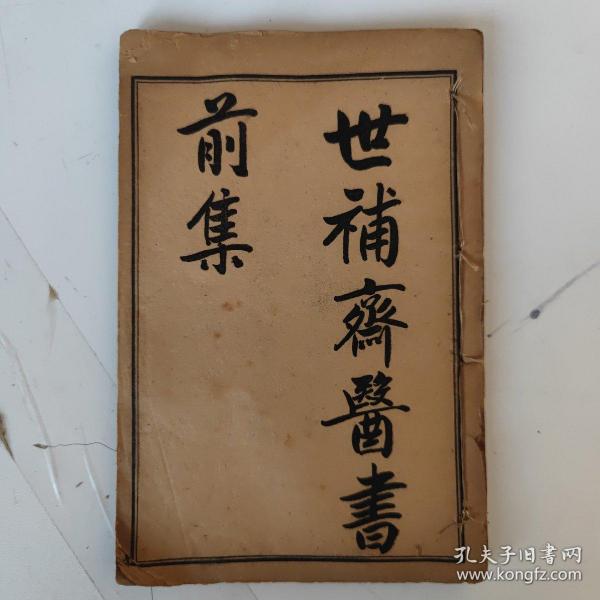 世補齋醫書
前集
孔夫子旧书网
www.kongfz.com